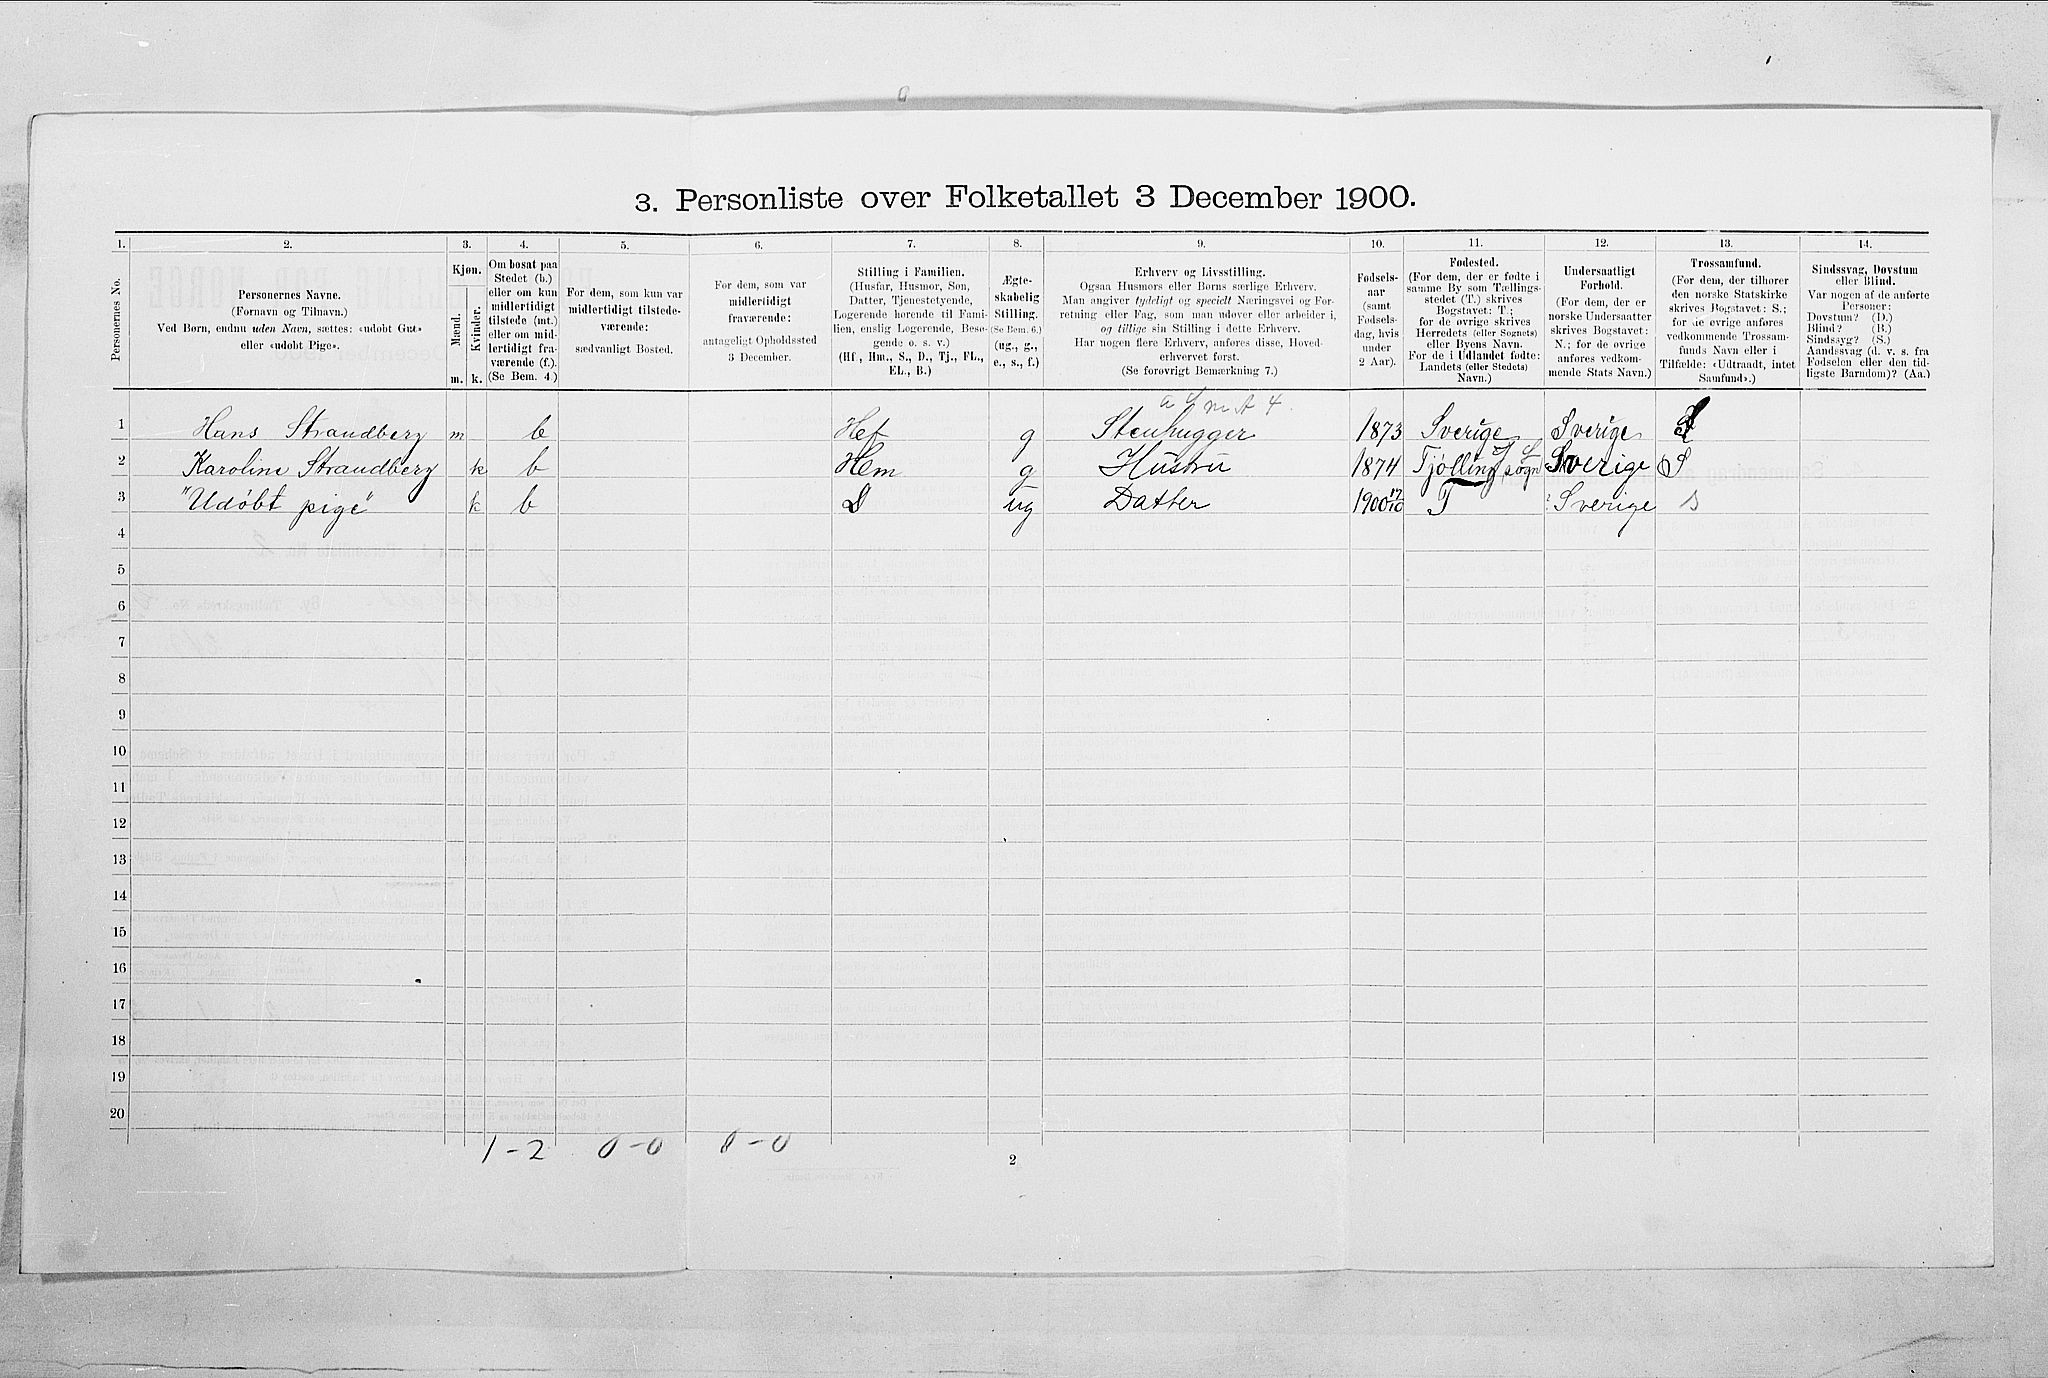 3. Personliste over Folketallet 3 December 1900.
1. 2. 3. 4. 5. 6. 7. 8. 9. 10. 11. 12. 13. 14.
Personernes No.
Personernes Navne.
(Fornavn og Tilnavn.)
Ved Børn, endnu uden Navn, sættes: «udøbt Gut»
eller «udøbt Pige».
Kjøn.
Mænd. Kvinder.
m. k.
Om bosat paa
Stedet (b.)
eller om kun
midlertidigt
tilstede (mt.)
eller om mid-
lertidigt fra-
værende (f.).
(Se Bem. 4.)
For dem, som kun var
midlertidigt tilstede-
værende:
sædvanligt Bosted.
For dem, som var
midlertidigt
fraværende:
antageligt Opholdssted
3 December.
Stilling i Familien.
(Husfar, Husmor, Søn,
Datter, Tjenestetyende,
Logerende hørende til Fami-
lien, enslig Logerende, Besø-
gende o. s. v.)
(Hf., Hm., S., D., Tj., FL.,
EL., B.)
Ægte-
skabelig
Stilling.
(Se Bem. 6.)
(ug., g.,
e., s., f.)
Erhverv og Livsstilling.
Ogsaa Husmors eller Børns særlige Erhverv.
Man angiver tydeligt og specielt Næringsvei og For-
retning eller Fag, som man udøver eller arbeider i,
og tillige sin Stilling i dette Erhverv.
Har nogen flere Erhverv, anføres disse, Hoved-
erhvervet først.
(Se forøvrigt Bemærkning 7.)
Fødsels-
aar
(samt
Fødsels-
dag, hvis
under
2 Aar).
Fødested.
(For dem, der er fødte i
samme By som Tællings-
stedet (T.) skrives
Bogstavet: T.;
for de øvrige skrives
Herredets (eller Sognets)
eller Byens Navn.
For de i Udlandet fødte:
Landets (eller Stedets)
Navn.)
Undersaatligt
Forhold.
(For dem, der er
norske Undersaatter
skrives Bogstavet:
N.; for de øvrige
anføres vedkom-
mende Stats Navn.)
Trossamfund.
(For dem, der tilhører
den norske Statskirke
skrives Bogstavet: S.;
for de øvrige anføres
vedkommende Trossam-
funds Navn eller i
Tilfælde: «Udtraadt, intet
Samfund».)
Sindssvag, Døvstum
eller Blind.
Var nogen af de anførte
Personer:
Døvstum? (D.)
Blind? (B.)
Sindssyg? (S.)
Aandssvag (d. v. s. fra
Fødselen eller den tid-
ligste Barndom)? (Aa.)
1 Hans Strandberg m b Hef g Stenhugger 1873 Sverige Sverige S
2 Karoline Strandberg k b Hem g Hustru 1874 Tjølling sogn Sverige S
3 "Udøbt pige" k b D ug Datter 1900 17/10 T Sverige S
4
5
6
7
8
9
10
11
12
13
14
15
16
17
18
19
20
1-2 0-0 0-0
2